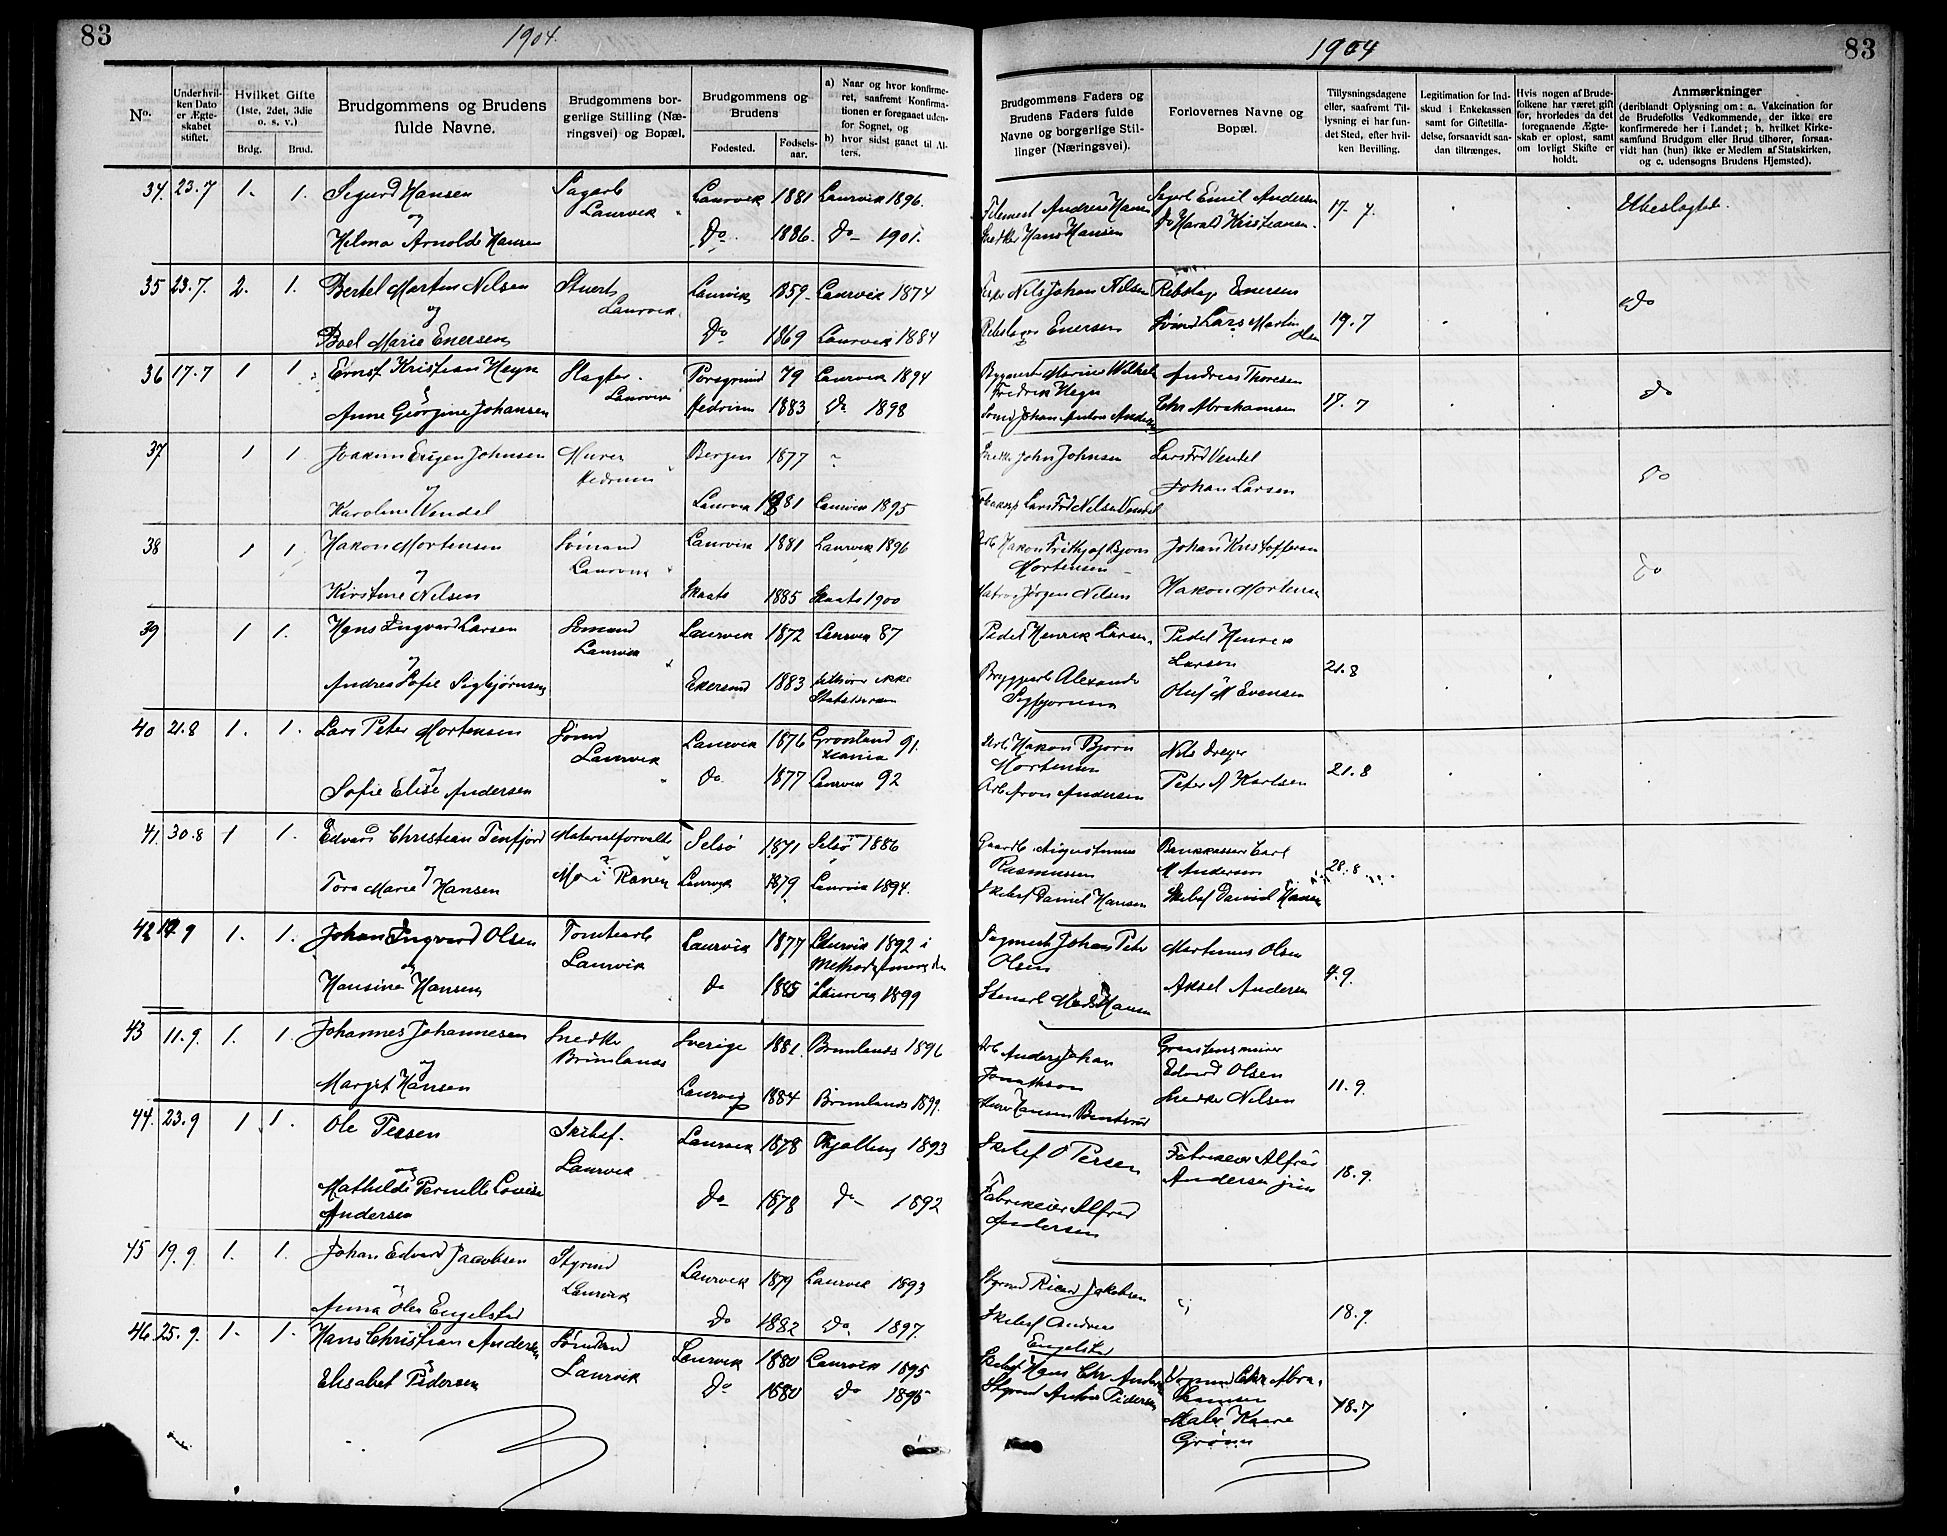 83
1904.
No.
Underhvilken Dato er Ægteskabet stiftet.
Hvilket Gifte (1ste, 2det, 3die o. s. v.)
Brdg.
Brud.
Brudgommens og Brudens fulde Navne.
Brudgommens borgerlige Stilling (Næringsvei) og Bopæl.
Brudgommens og Brudens
Fødested.
Fødselsaar.
a) Naar og hvor konfirmeret, saafremt Konfirmationen er foregaaet udenfor Sognet, og
b) hvor sidst gaaet til Alters.
34. 23.7 1. 1. Sigurd Hansen Sagarb Laurvik 1881 Laurvik 1896.
og Laurvik
Helma Arnolda Hansen Do 1886. Do 1901.
35 23.7. 2. 1. Bertel Martin Nilsen Stuert Laurvik 1859 Laurvik 1874
og Laurvik
Boel Marie Enersen Do 1869 Laurvik 1884
36 17.7 1 1 Ernst Kristian Heyn Slagter Porsgrund 79 Laurvik 1894
Laurvik
Anne Georgine Johansen Hedrum 1883 Do 1898
37 1 1 Joakim Eugen Johnsen Murer Bergen 1877
og Hedrum
Karoline Wendel Laurvik 1881 Laurvik 1895
38 1 1 Hakon Mortensen Sömand Laurvik 1881 Laurvik 1896
og Laurvik
Kirstine Nilsen Skaato 1885 Skaato 1900
39 1 1. Hans Ingvard Larsen Sömand Laurvik 1872 Laurvik 87
og Laurvik
Andrea Sofie Sigbjörnsen Ekersund 1883 tilhörer ikke
Statskirken
40 21.8 1. 1. Lars Peter Mortensen Sömd Laurvik 1876 91.
og Laurvik
Sofie Elise Andersen Do 1877 Laurvik 92
41. 30.8 1 1. Edvard Christian Tenfjord Materialforvalter Selsö 1871 Selsö 1886
og
Tora Marie Hansen Mo i Ranen Laurvik 1879 Laurvik 1894.
42 9 1. 1. Johan Ingvard Olsen Tomtearb Laurvik 1877 Laurvik 1892 i
og Laurvik
Hansine Hansen Do 1885 Laurvik 1899
43 11.9. 1. 1. Johannes Johannesen Snedker Sverige 1881 Brunlands 1896
og Brunlands
Margit Hansen Laurvig 1884 Brunlands 1899.
44. 23.9 1 1. Ole Persen Skibsf. Laurvik 1878 Tjölling 1893
og Laurvik
Mathilde Pernille Lovise Do 1878 Do 1892
Andersen
45 19.9. 1. 1. Johan Edvard Jacobsen Styrmd Laurvik 1879 Laurvik 1893
Laurvik
Anna Olea Engelstad Do 1882 Do 1897.
46. 25.9. 1. 1. Hans Christian Andersen Laurvik 1880 Laurvik 1895
Laurvik
Elisabet Pedersen Do 1880 Do 1895
1904
83
Brudgommens Faders og Brudens Faders fulde Navne og borgerlige Stillinger (Næringsvei).
Forlovernes Navne og Bopæl.
Tillysningsdagene eller, saafremt Tillysning ei har fundet Sted, efter hvilken Bevilling.
Legitimation for Indskud i Enkekassen samt for Giftetilladelse, forsaavidt saadan tiltrænges.
Hvis nogen af Brudefolkene har været gift før, hvorledes da det foregaaende Ægteskab er opløst, samt om lovligt Skifte er holdt.
Anmærkninger
(deriblandt Oplysning om: a. Vakcination for de Brudefolks Vedkommende, der ikke ere konfirmerede her i Landet; b. hvilket Kirkesamfund Brudgom eller Brud tilhører, forsaavidt han (hun) ikke er Medlem af Statskirken, og c. udensogns Brudens Hjemsted).
Andreas Hansen Sagarb Emil Andersen 17. 7. Ubeslægtede.
Snedker Hans Hansen Do Harald Kristiansen.
Nils Johan Nilsen Rebslager Enersen Do
Rebslager Enersen Sömd Lars Martin 19.7
Olsen
Marius Wilhelm Andreas Thoresen Do
Fredrik Heyn
Sömd Johan Anton Andersen Chr Abrahamsen 17.7
Snedker John Johnsen Lars Frd Vendel Do
Johan Larsen
Lars Frd Nilsen Vendel
Arb Hakon Fridtjof Bjorn Johan Kristoffersen Do
Mortensen
Jörgen Nilsen Hakon Mortensen
Henrik Larsen Henrik
Larsen 21.8
Bryggearb Alexander Oluf M Evensen
Sigbjornsen
Arb Hakon Bjorn Nils Dreyer
Mortensen 21.8
Arb Aron Andersen Peter A Karlsen
Gaardb Augustinus Bankkasserer Carl
Rasmussen M Andersen 28.8
Skibsf Daniel Hansen Skibsf Daniel Hansen
Sagmest Johan Peter Martinus Olsen
Olsen 4.9.
Mads Hansen Aksel Andersen
Arb Anders Johan
Jonathson Edvard Olsen 11.9.
Hansen Snedker Nilsen
Skibsf O Persen Fabrikeier Alfred
Andersen jun 18.9.
Fabrikeier Alfred
Andersen
Styrmd Jakobsen 18.9.
Skibsf Andreas
Engelstad
Skibsf Hans Chr Andersen Chr Abra-
Styrmd Anton Pedersen hamsen 18.7
Maler Kaare
Grönn